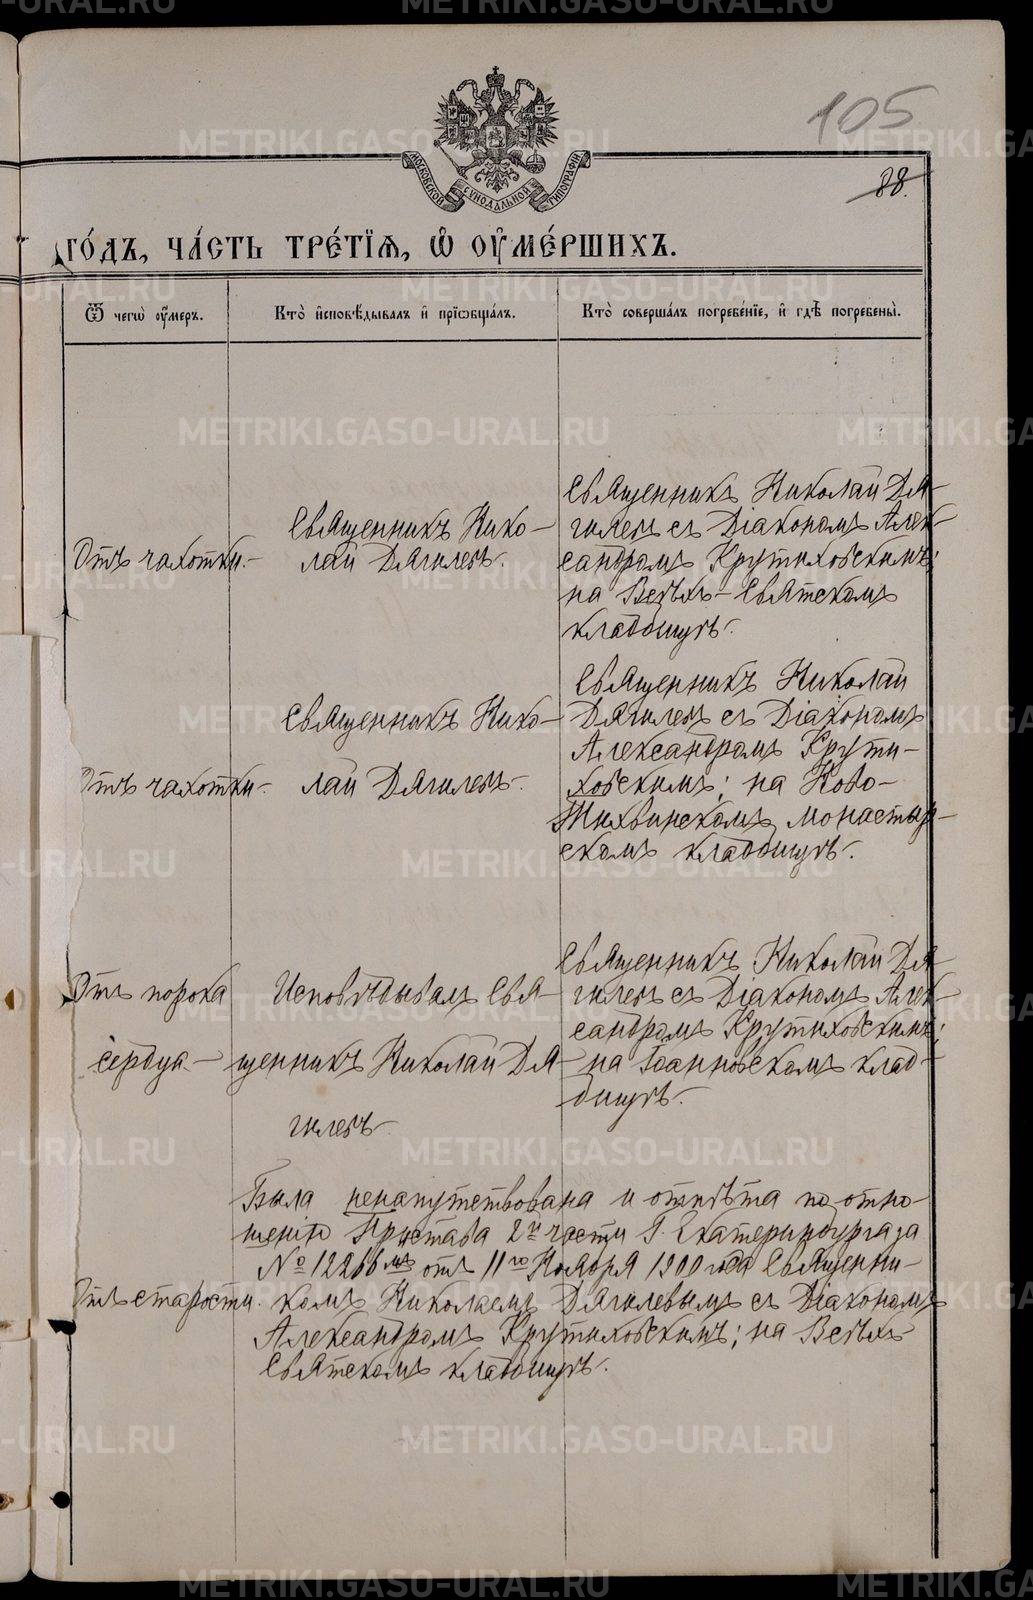 105
88.
МОСКОВСКОЙ СѴНОДАЛЬНОЙ ТИПОГРАФІИ
го́дъ, ча́сть тре́тїѧ, ѡ҆ оу҆ме́ршихъ.
Ѿ чегѡ̀ оу҆́меръ.
Кто̀ и҆сповѣ́дывалъ и҆ прїѡбща́лъ.
Кто̀ соверша́лъ погребе́нїе, и҆ гдѣ̀ погребены̀.
Отъ чахотки.-
Священникъ Нико-
лай Дягилевъ.
Священникъ Николай Дя-
гилевъ съ Діакономъ Алек-
сандромъ Крутиховскимъ;
на Всѣхъ-Святскомъ
кладбищѣ.
Отъ чахотки.
Священникъ Нико-
лай Дягилевъ.
Священникъ Николай
Дягилевъ съ Діакономъ
Александромъ Крути-
ховскимъ; на Ново-
Тихвинскомъ монастыр-
скомъ кладбищѣ.
Отъ порока
сердца.-
Исповѣдывалъ Свя-
щенникъ Николай Дя-
гилевъ.
Священникъ Николай Дя-
гилевъ съ Діакономъ Алек-
сандромъ Крутиховскимъ;
на Іоанновскомъ клад-
бищѣ.
Отъ старости.
Была ненапутствована и отпѣта по отно-
шенію Пристава 2й части г. Екатеринбурга за
№ 12266мъ отъ 11го Ноября 1900 года Священни-
комъ Николаемъ Дягилевымъ съ Діакономъ
Александромъ Крутиховскимъ; на Всѣхъ-
Святскомъ кладбищѣ.
METRIKI.GASO-URAL.RU